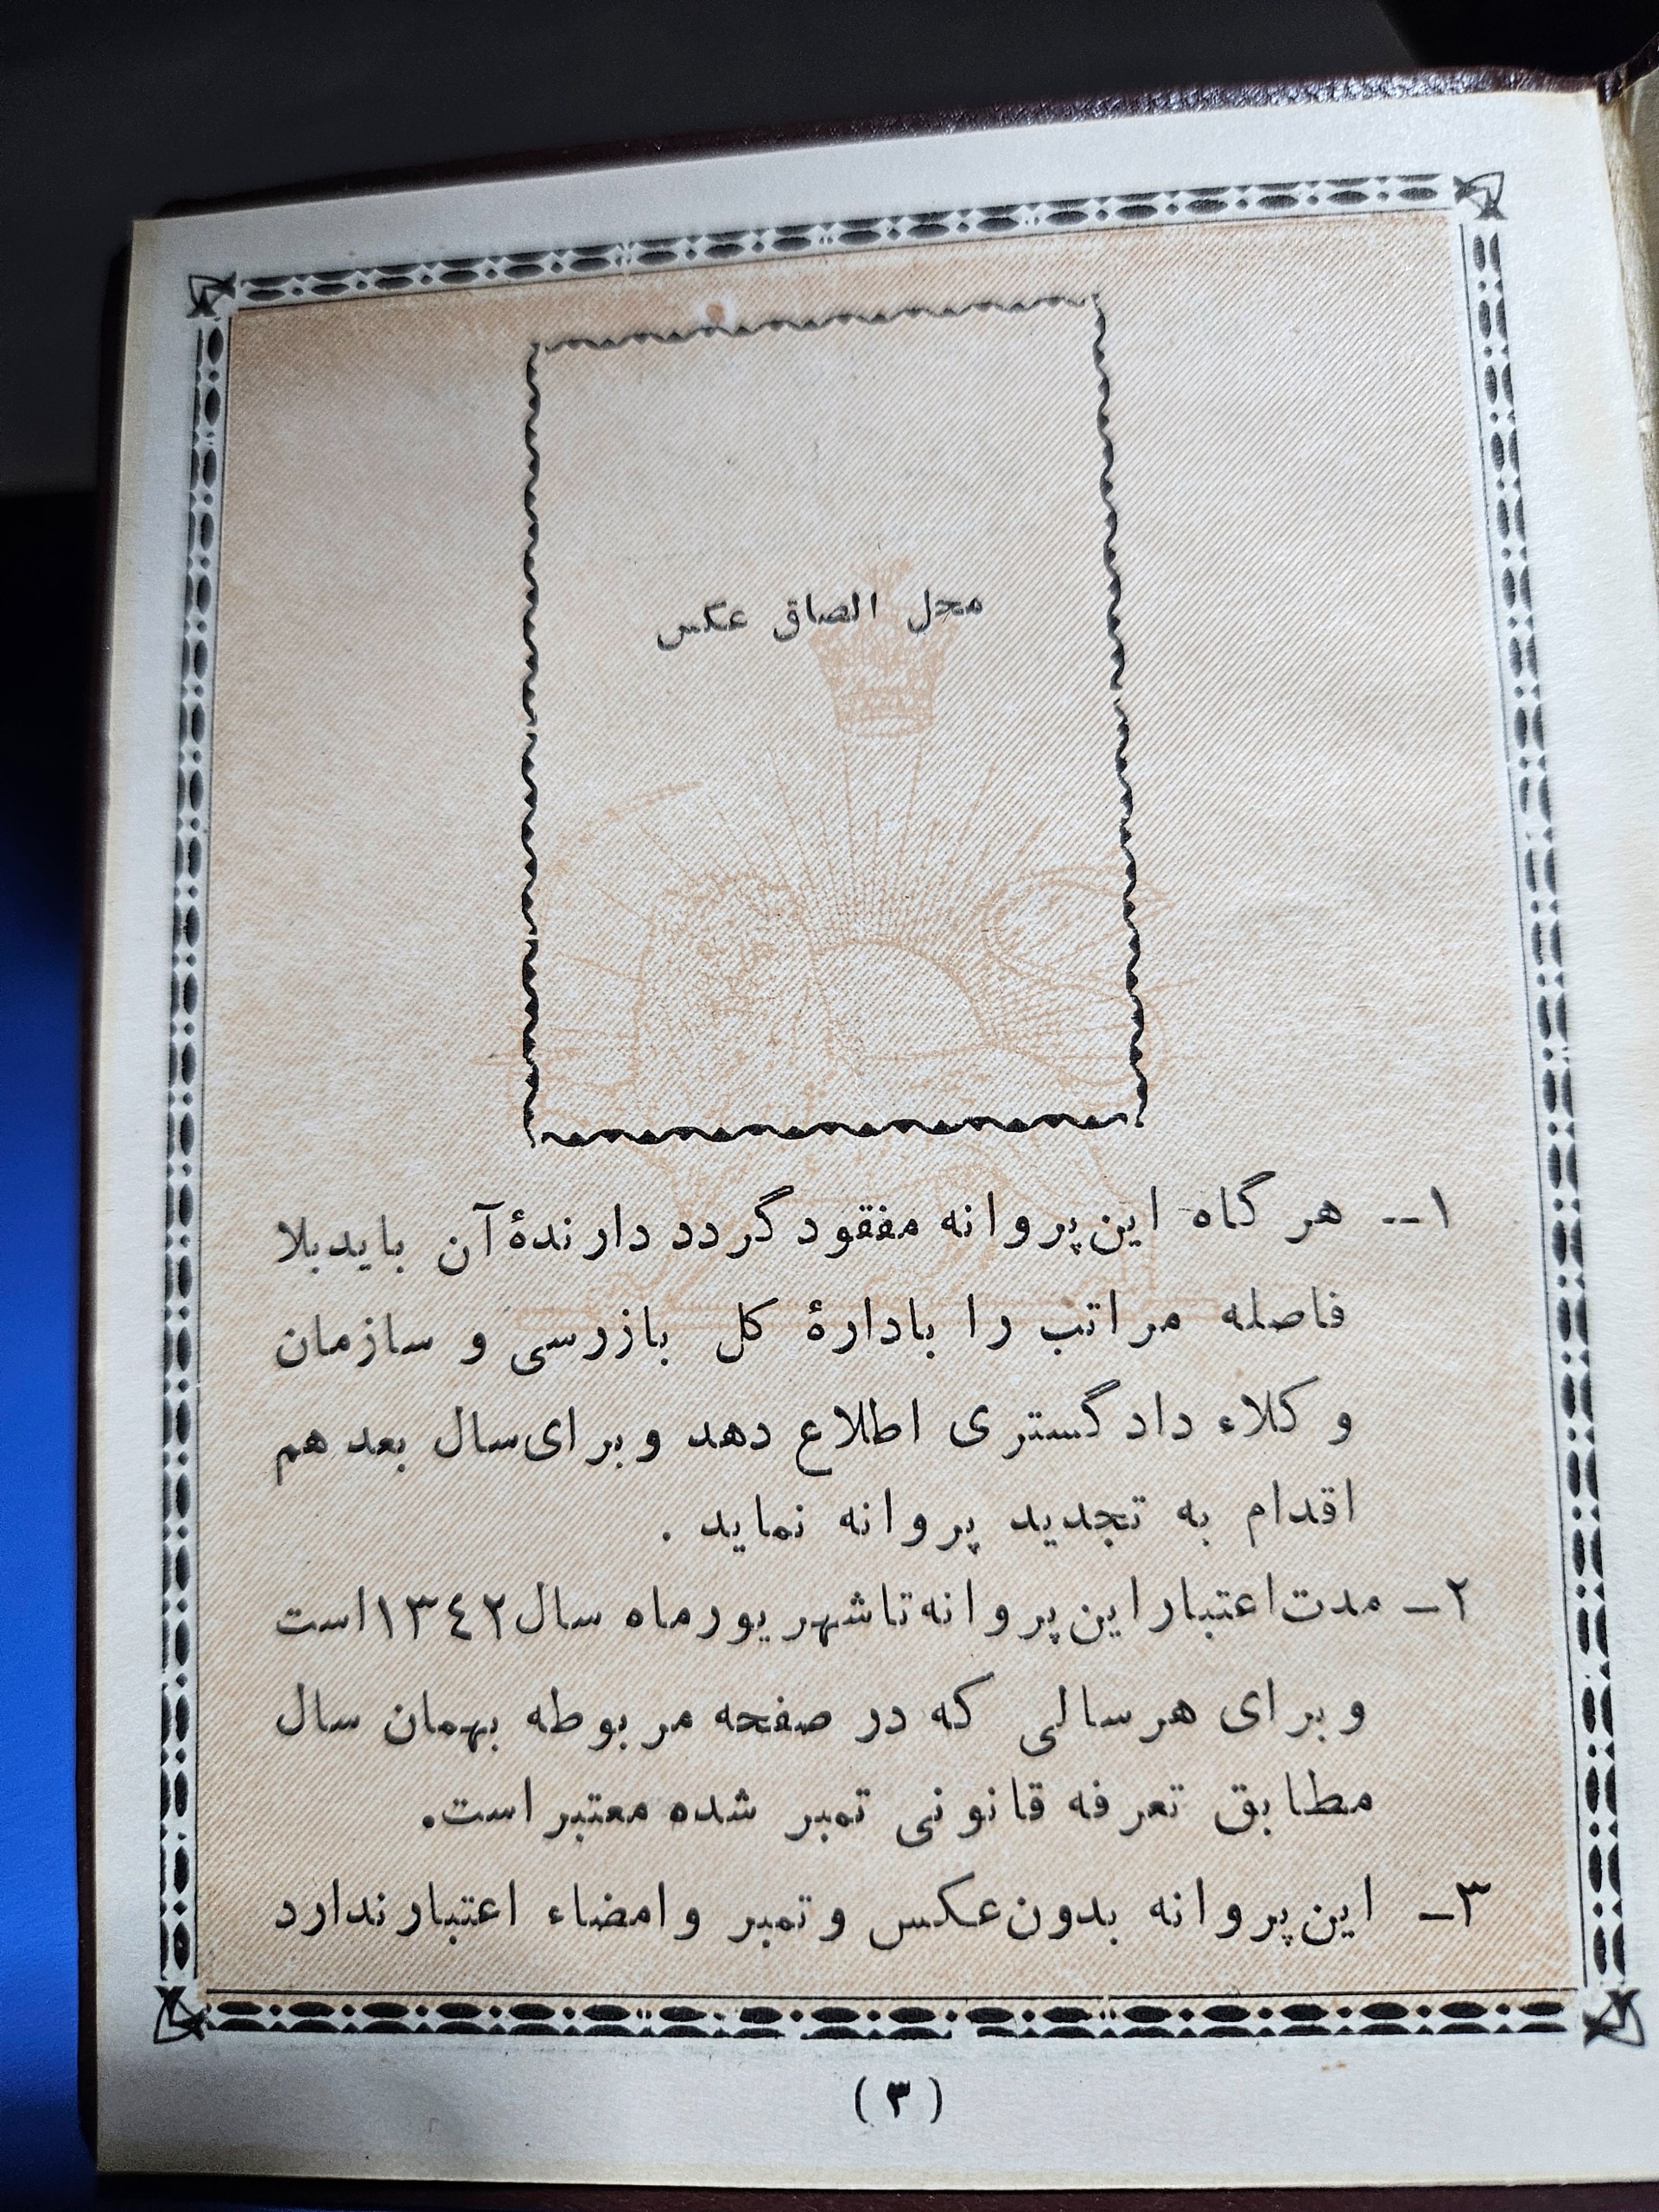 محل الصاق عکس
۱-- هر گاه این پروانه مفقود گردد دارندهٔ آن باید بلا
فاصله مراتب را بادارهٔ کل بازرسی و سازمان
و کلاء دادگستری اطلاع دهد و برای سال بعد هم
اقدام به تجدید پروانه نماید .
۲- مدت اعتبار این پروانه تا شهریور ماه سال ۱۳٤۲ است
و برای هر سالی که در صفحه مربوطه بهمان سال
مطابق تعرفه قانونی تمبر شده معتبر است.
۳- این پروانه بدون عکس و تمبر و امضاء اعتبار ندارد
( ۳ )